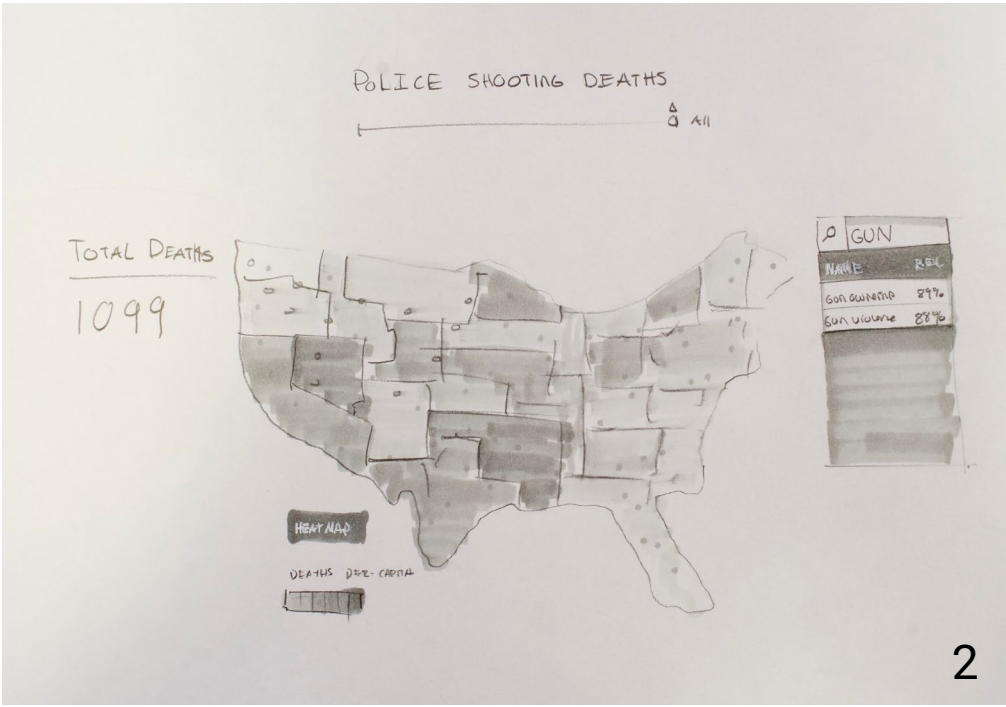 POLICE SHOOTING DEATHS
All
TOTAL DEATHS
1099
GUN
NAME REL
Gun ownership 89%
Gun violence 88%
HEAT MAP
DEATHS PER-CAPITA
2